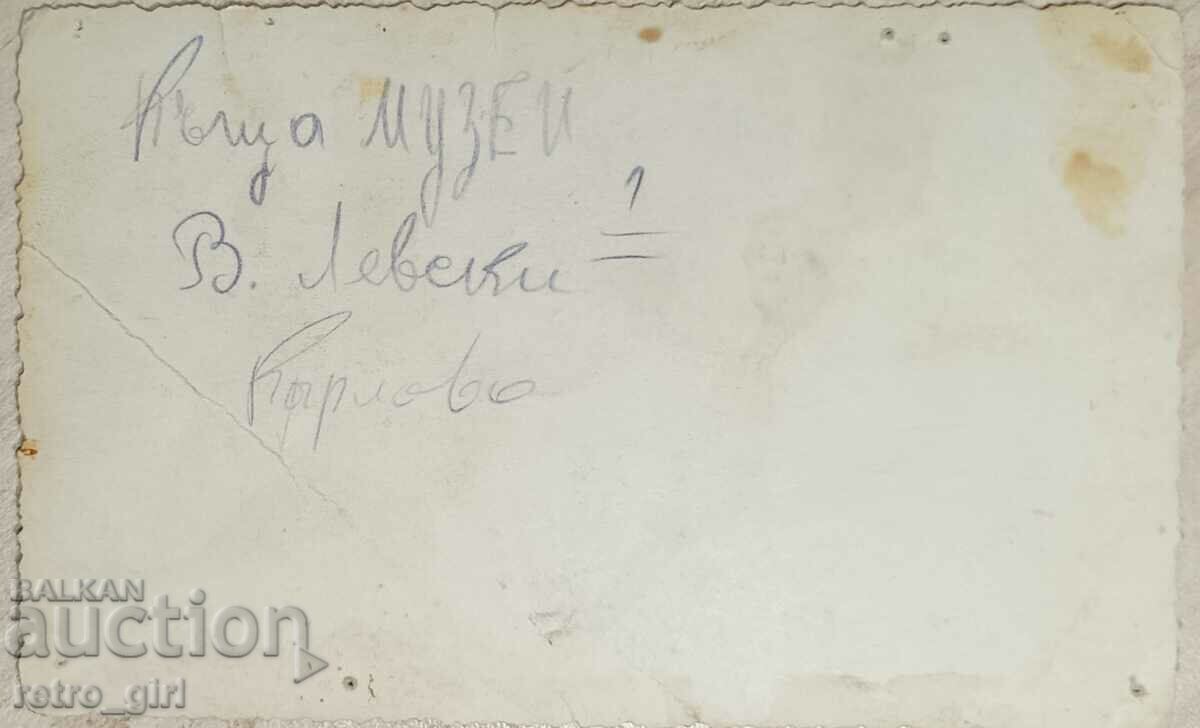 Къща МУЗЕЙ
1
В. Левски
Кърлово
BALKAN
auction
retro_girl